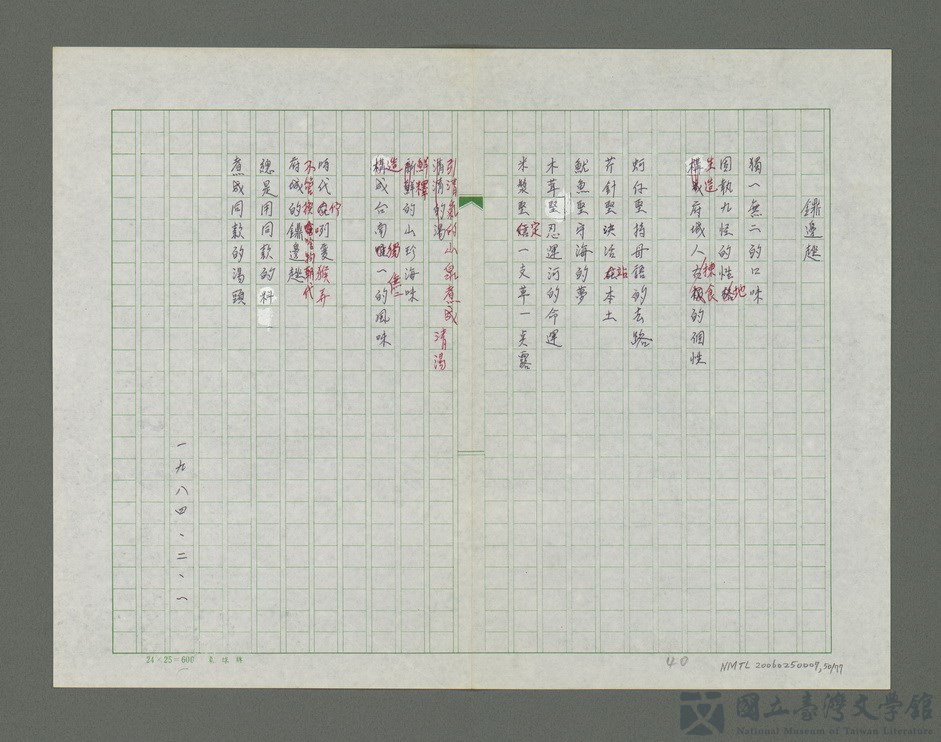 鐤邊趖
獨一無二的口味
固執九怪的性地
生造府城人揀食的個性
蚵仔堅持母語的去路
芹針堅決治站本土
魷魚堅守海的夢
木茸堅忍運河的命運
米漿堅信定一文草一点露
引清氣的山泉煮成清湯
新鮮的山珍海味
造成台南獨一的風味
時代佇咧變猴弄
不管按怎物朝代
府城的鐤邊趖
總是用同款的料
煮成同款的湯頭
一九八四、二、一
24×25=600
40
NMTL 20060250009, 50/77
國立臺灣文學館
National Museum of Taiwan Literature